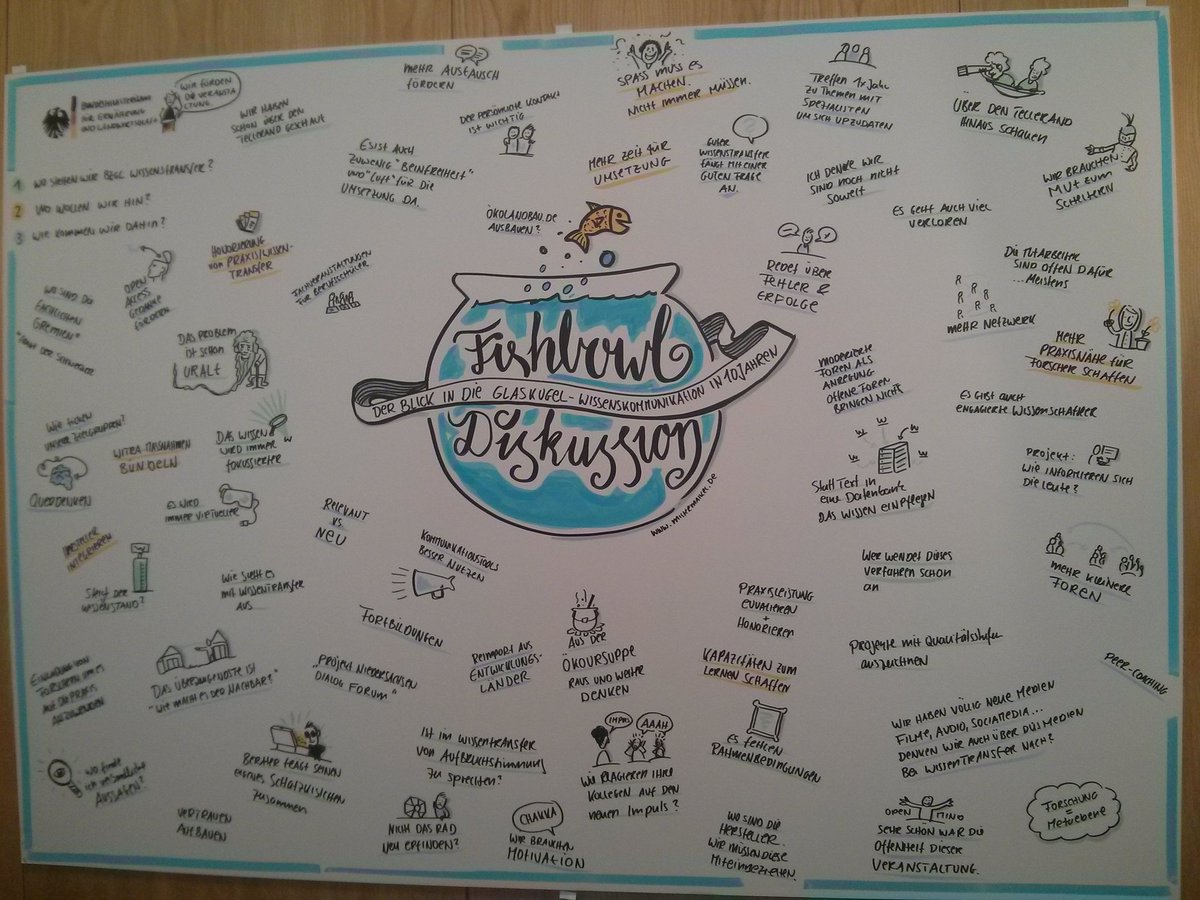 BUNDESMINISTERIUM
FÜR ERNÄHRUNG
UND LANDWIRTSCHAFT
WIR FÖRDEN
DIE VERANSTA
LTUNG.
WIR HABEN
SCHON ÜBER DEN
TELLERAND GESCHAUT
MEHR AUSTAUSCH
FÖRDERN
DER PERSÖNLICHE KONTAKT
IST WICHTIG
SPASS MUSS ES
MACHEN
NICHT IMMER MÜSSEN.
TREFFEN 1x JAHR
ZU THEMEN MIT
SPEZIALISTEN
UM SICH UPZUDATEN
ÜBER DEN TELLERAND
HINAUS SCHAUEN
1 WO STEHEN WIR BZGL WISSENSTRANSFER?
2 WO WOLLEN WIR HIN?
3 WIE KOMMEN WIR DAHIN?
ES IST AUCH
ZUWENIG "BEINFREIHEIT"
UND "LUFT" FÜR DIE
UMSETZUNG DA.
MEHR ZEIT FÜR
UMSETZUNG
GUTER
WISSENSTRANSFER
FÄNGT MIT EINER
GUTEN FRAGE
AN.
ICH DENKE WIR
SIND NOCH NICHT
SOWEIT
WIR BRAUCHEN
MUT ZUM
SCHEITERN
ES GEHT AUCH VIEL
VERLOREN
ÖKOLANDBAU.DE
AUSBAUEN?
HONORIERUNG
VON PRAXIS/WISSEN-
TRANSFER
FACHVERANSTALTUNGEN
FÜR BERUFSSCHÜLER
OPEN
ACCESS
GEDANKE
FÖRDERN
WO SIND DIE
FACHLICHEN
GREMIEN
REDET ÜBER
FEHLER &
ERFOLGE
DIE MITARBEITER
SIND OFFEN DAFÜR
...MEISTENS
MEHR NETZWERK
MEHR
PRAXISNÄHE FÜR
FORSCHER SCHAFFEN
DAS PROBLEM
IST SCHON
URALT
Fishbowl
DER BLICK IN DIE GLASKUGEL - WISSENSKOMMUNIKATION IN 10 JAHREN
Diskussion
MODERIERTE
FOREN ALS
ANREGUNG
OFFENE FOREN
BRINGEN NICHTS
ES GIBT AUCH
ENGAGIERTE WISSENSCHAFTLER
WIE TICKEN
UNSERE ZIELGRUPPEN?
QUERDENKEN
MASSNAHMEN
BÜNDELN
DAS WISSEN
WIRD IMMER
FOKUSSIERTER
W
W
W
W
STATT TEXT IN
EINE DATENBANK
DAS WISSEN EINPFLEGEN
PROJEKT:
WIE INFORMIEREN SICH
DIE LEUTE?
ES WIRD
IMMER VIRTUELLER
RELEVANT
VS.
NEU
HERSTELLER
INTEGRIEREN
STEIGT DER
WISSENSTAND?
WIE SIEHT ES
MIT WISSENTRANSFER
AUS
KOMMUNIKATIONSTOOLS
BESSER NUTZEN
FORTBILDUNGEN
WER WENDET DIESES
VERFAHREN SCHON
AN
MEHR KLEINERE
FOREN
PRAXISLEISTUNG
EVALUIEREN
+
HONORIEREN
EINLADUNG VON
FORSCHERN UM ES
AUF DIE PRAXIS
ANZUWENDEN
DAS ÜBERZEUGENDSTE IST
"WIE MACHT ES DER NACHBAR?"
"PROJEKT NIEDERSACHSEN
DIALOG FORUM"
REIMPORT AUS
ENTWICKLUNGS-
LÄNDER
AUS DER
ÖKOURSUPPE
RAUS UND WEITER
DENKEN
KAPAZITÄTEN ZUM
LERNEN SCHAFFEN
PROJEKTE MIT QUALITÄTSSTUFEN
AUSZEICHNEN
PEER-COACHING
WO FINDE
ICH WESENTLICHE
AUSSAGEN?
BERATER TRÄGT SEINEN
EIGENES SCHATZKISTCHEN
ZUSAMMEN
IST IM WISSENTRANSFER
VON AUFBRUCHSTIMMUNG
ZU SPRECHEN?
IMPULS
AAAH
WIE REAGIEREN IHRE
KOLLEGEN AUF DEN
NEUEN IMPULS?
ES FEHLEN
RAHMENBEDINGUNGEN
WIR HABEN VÖLLIG NEUE MEDIEN
FILME, AUDIO, SOCIAMEDIA...
DENKEN WIR AUCH ÜBER DIES MEDIEN
BEI WISSENTRANSFER NACH?
VERTRAUEN
AUFBAUEN
NICHT DAS RAD
NEU ERFINDEN?
CHAKKA
WIR BRAUCHEN
MOTIVATION
WO SIND DIE
HERSTELLER.
WIR MÜSSEN DIESE
MITEINBEZIEHEN.
OPEN MIND
SEHR SCHÖN WAR DIE
OFFENHEIT DIESER
VERANSTALTUNG.
FORSCHUNG
=
METAEBENE